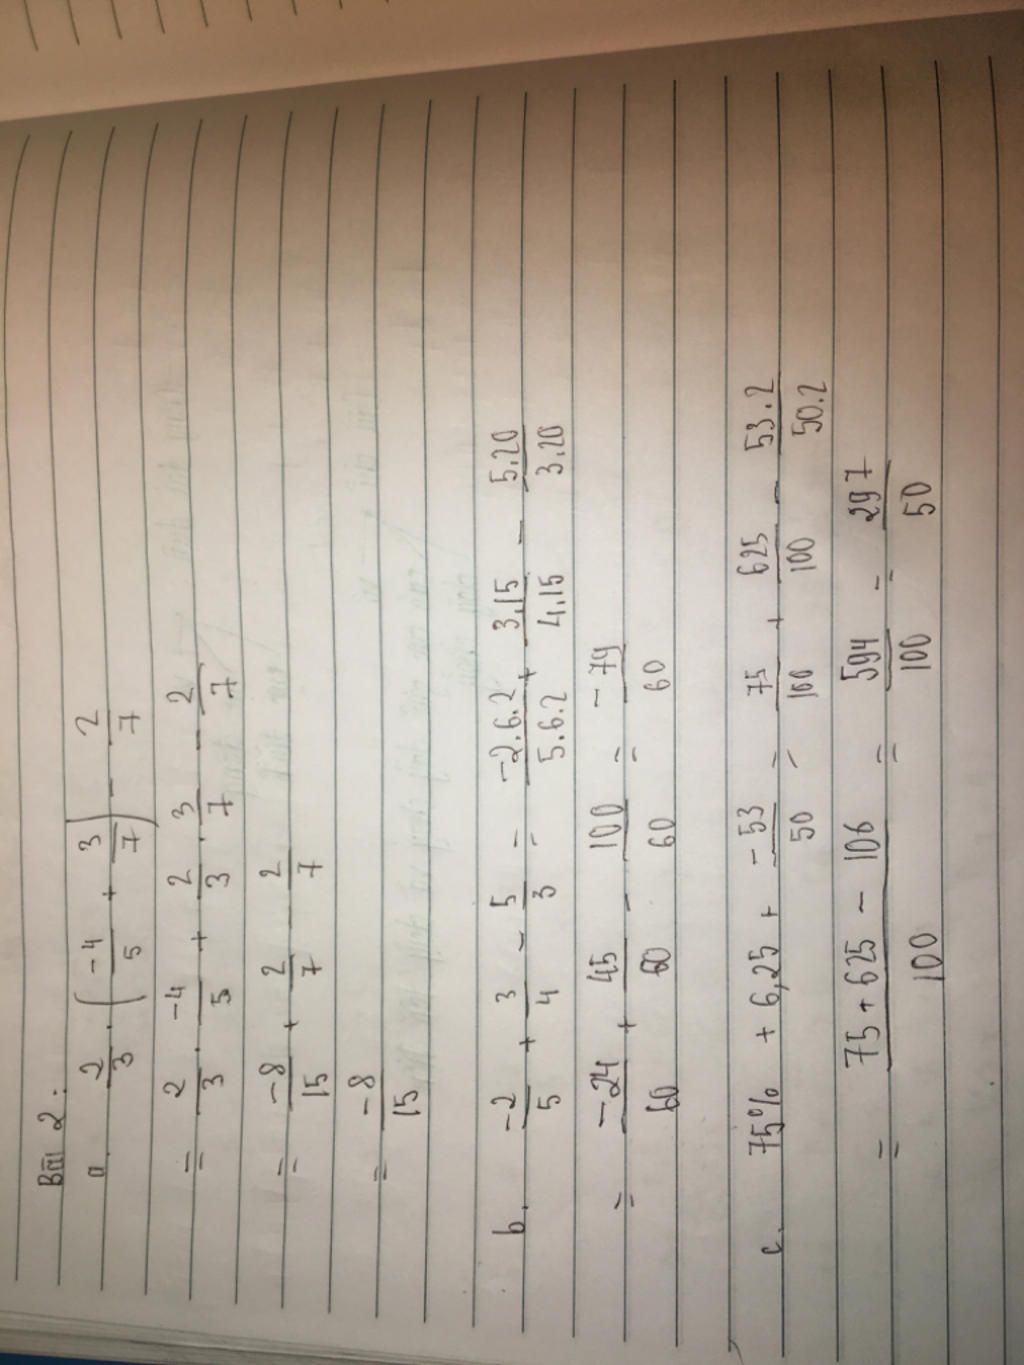 Bài 2:
a 2/3 . (-4/5 + 3/7) - 2/7
= 2/3 . -4/5 + 2/3 . 3/7 - 2/7
= -8/15 + 2/7 - 2/7
= -8/15
b. -2/5 + 3/4 - 5/3 = -2.6.2/5.6.2 + 3.15/4.15 - 5.20/3.20
= -24/60 + 45/60 - 100/60 = -79/60
c. 75% + 6,25 + -53/50 = 75/100 + 625/100 - 53.2/50.2
= 75 + 625 - 106/100 = 594/100 = 297/50